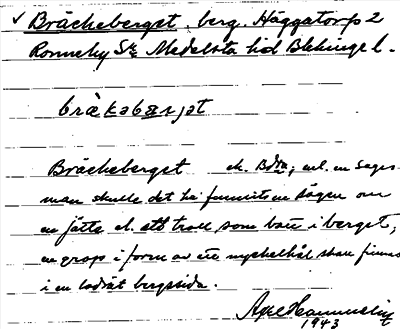 ✓ Bräckeberget, berg. Häggatorp 2
Ronneby Sn Medelsta hd Blekinge l.
brækəbærjət
Bräckeberget ek. B; enl. en sages-
man skulle det ha funnits en sägen om
en jätte el. ett troll som bott i berget,
en grop i form av ett nyckelhål skall finnas
i en lodrät bergssida.
Axel
1943